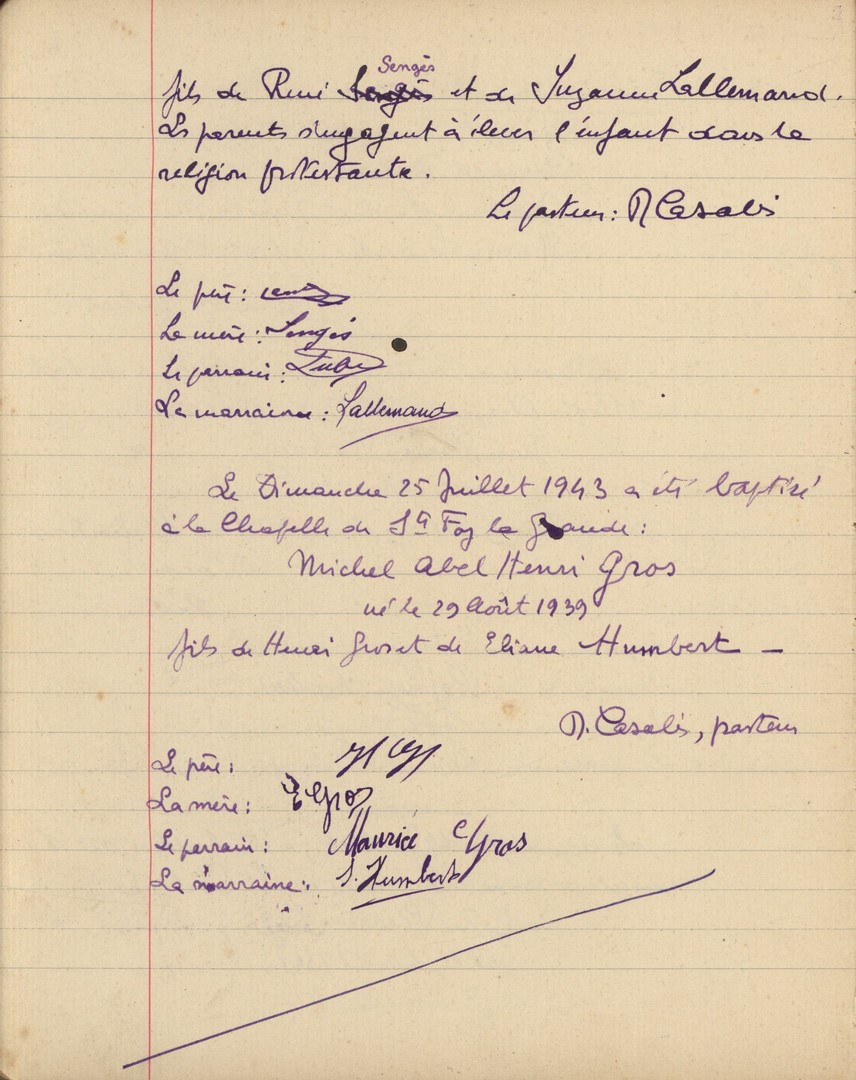 Sengès
fils de René Sengès et de Suzanne Lallemand.
Les parents s'engagent à élever l'enfant dans la
religion protestante.
Le pasteur: R Casalis
Le père:
La mère: Sengès
Le parrain:
La marraine: Lallemand
Le Dimanche 25 Juillet 1943 a été baptisé
à la Chapelle de Ste Foy la Grande:
Michel Abel Henri Gros
né le 29 Août 1939
fils de Henri Gros et de Eliane Humbert —
R. Casalis, pasteur
Le père:
La mère: E Gros
Le parrain: Maurice Gros
La marraine: S. Humbert